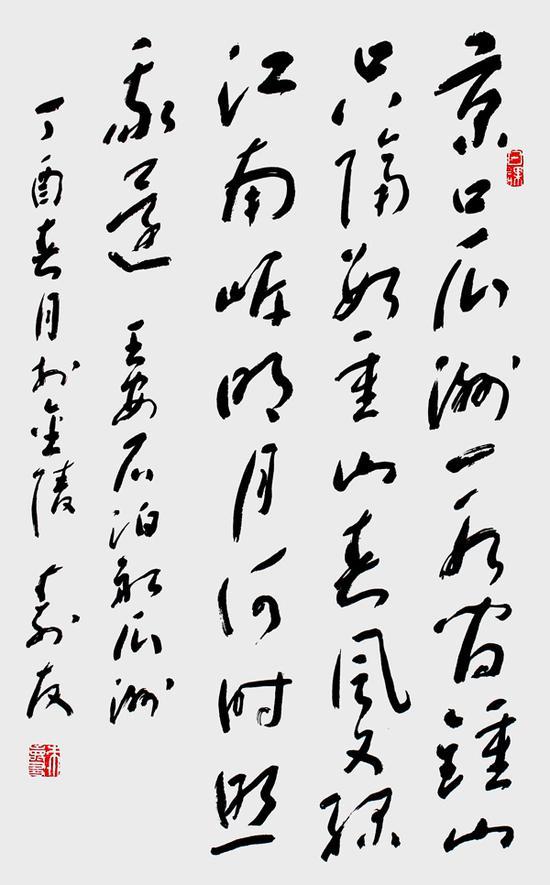 京口瓜洲一水間鍾山
只隔數重山春風又綠
江南岸明月何时照
我還 王安石泊船瓜洲
丁酉春月於金陵 壽友